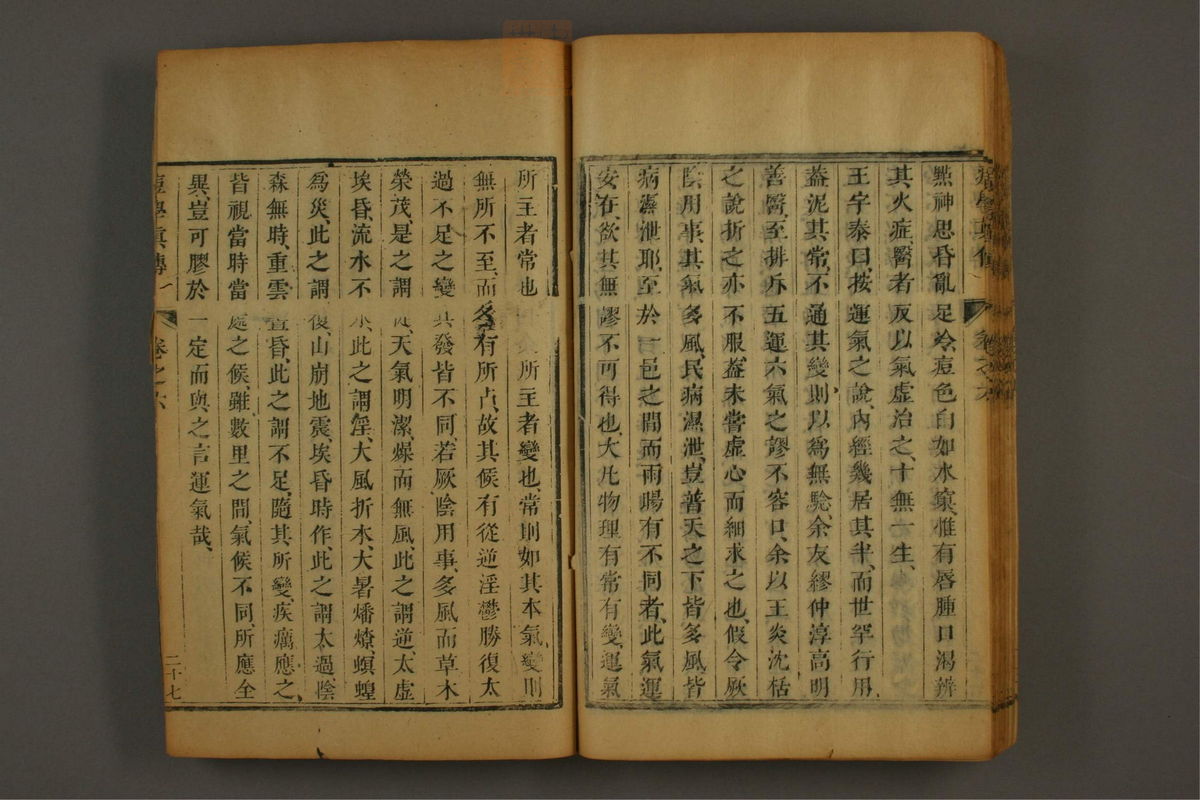 痘學真傳
卷之六
㸃神思昏亂足冷痘色白如水䉺惟有唇腫口渴辨
其火症醫者反以氣虛治之十無一生
王宇泰曰按運氣之說內經幾居其半而世罕行用
葢泥其常不通其變則以爲無驗余友繆仲淳高明
善醫至排斥五運六氣之謬不容口余以王炎沈括
之說折之亦不服葢未嘗虛心而細求之也假令厥
陰用事其氣多風民病濕泄豈普天之下皆多風皆
病濕泄耶至於一邑之間而雨暘有不同者此氣運
安在欲其無謬不可得也大凡物理有常有變運氣
所主者常也所主者變也常則如其本氣變則
無所不至而各有所占故其候有從逆淫鬱勝復太
過不足之變其發皆不同若厥陰用事多風而草木
榮茂是之謂從天氣明潔燥而無風此之謂逆太虛
埃昏流水不氷此之謂淫大風折木大暑燔燎螟蝗
爲災此之謂復山崩地震埃昏時作此之謂太過陰
森無時重雲晝昏此之謂不足隨其所變疾癘應之
皆視當時當處之候雖數里之間氣候不同所應全
異豈可膠於一定而與之言運氣哉
痘學眞傳
卷之六
二十七